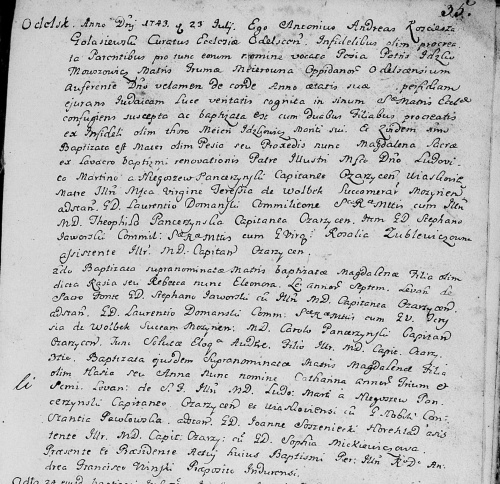 35.
Odelsk. Anno Dnj 1743. d 23 Julij. Ego Antonius Andreas Kosciesza
Golasiewski Curatus Ecclesiæ Odelscen. Infidelibus olim procrea-
ta Parentibus pro tunc eorum nomine vocata Pesia Patris Idzko
Mowszowicz Matris Meierowna Oppidanor Odelscensium
Auferente Dno velamen de corde Anno ætatis suæ perfidiam
ejurans Judaicam Luce veritatis cognita in sinum Stæ Matris Eccle
confugiens suscepta ac baptizata est cum Duabus Filiabus procreatis
ex Infideli olim thoro Meien Idzkowicz Mariti sui. Et Ejusdem
Baptizata est Mater olim Pesia seu Proxedis nunc Magdalena Sacræ
ex lavacro baptismi renovationis Patre Illustri Mfco Dno Ludovi
co Martino a Niegoszew Panczerzynski Capitaneo Ozarycen. Wiaslovie
Matre Illri Mfca Virgine Teresia de Wolbek Succamera Mozyrien
adstan. GD. Laurentio Domanski Commilitone cum Illri
MD. Theophila Pancerzynska Capitanea Ozarycen. Item GD Stephano
Jaworski Commil: cum G Virg: Rosalia Zublewiczowna
assistente Illr. MD. Capitan Ozarycen.
2do Baptizata supranominatæ Matris baptizatæ Magdalenæ Filia olim
dicta Rasia seu Rebeca nunc Eleonora. annor Septem. Levan. de
Sacro Fonte GD. Stephano Jaworski cu Illri MD. Capitanea Ozarycen.
adstan. GD. Laurentio Domanski Comm: cum GV. Tere
sia de Wolbek Succam Mozyrien: MD. Carolo Pancerzynski Capitan
Ozarycen. Tunc Filio Illr MD. Capit. Ozary.
3tio. Baptizata ejusdem Supranominatæ Matris Magdalenæ Filia
olim Hasio seu Anna Nunc nomine Catharina annor Trium et
Semi. Levan: de S. F. Illri MD. Ludo: Mart: a Niegoszew Pan-
cerzynski Capitaneo Ozarycen et Wiasloviensi cu G. Nobili Con-
stantia Pawlowska. adstan. GD. Joanne assis
tente Illr. MD. Capit: Ozary: cu GD Sophia Mickiewiczowa.
Præsente et Præsidente Actui huius Baptismi Per: Illri Rndo An-
drea Francisco Ninski Præposito Indurensi.